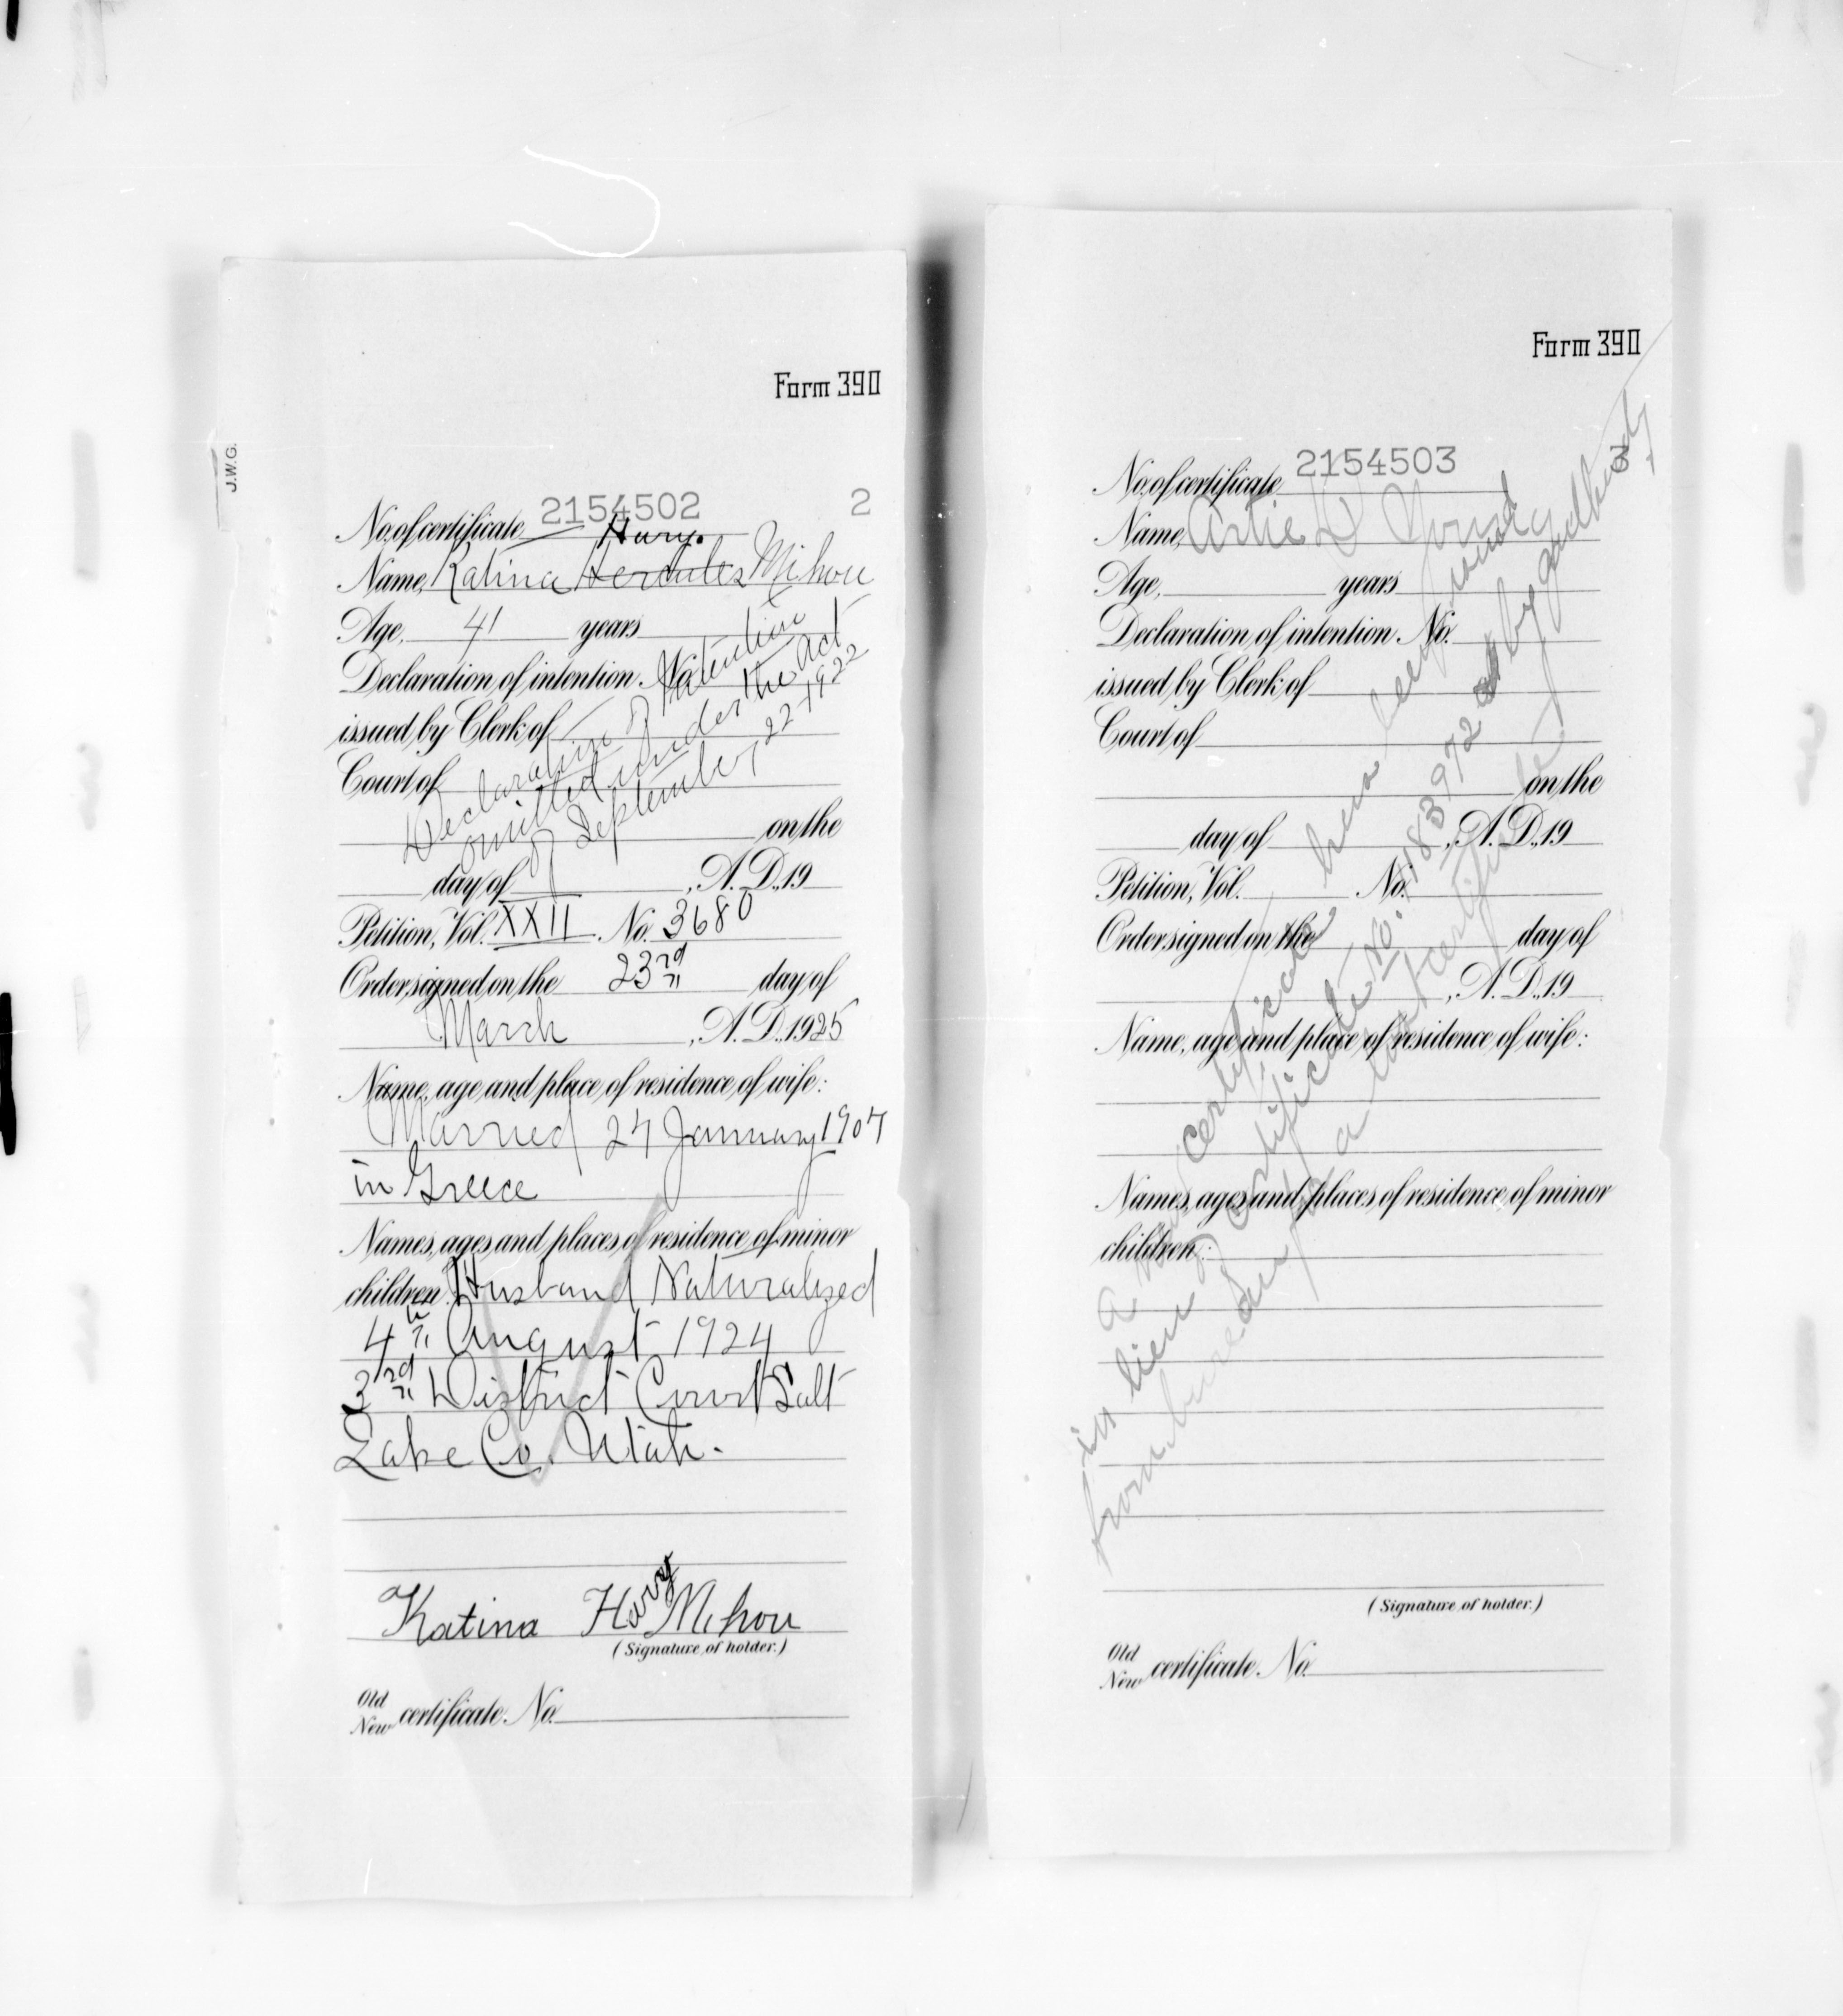 J.W.G.
Form 390
No. of certificate 2154502 2
Hary.
Name, Katina Hercules Mihou
Age, 41 years
Declaration of intention No.
issued by Clerk of
Court of
Declaration of Intention
omitted under the Act
of September 22-1922
on the
day of , A. D., 19
Petition, Vol. XXII No. 3680
Order signed on the 23rd day of
March , A. D., 1925
Name, age and place of residence of wife:
Married 24 January 1904
in Greece
Names, ages and places of residence of minor
children: Husband Naturalized
4th August 1924
3rd District Court Salt
Lake Co. Utah.
Katina Hary Mihou
(Signature of holder.)
Old
New certificate No.
Form 390
No. of certificate 2154503 3
Name, Artie D
Age, years
Declaration of intention No.
issued by Clerk of
Court of
on the
day of , A. D., 19
Petition, Vol. No.
Order signed on the day of
, A. D., 19
Name, age and place of residence of wife:
Names, ages and places of residence of minor
children:
a new certificate has been issued
in lieu of certificate No. 183972 by
from bureau, a lost certificate
(Signature of holder.)
Old
New certificate No.